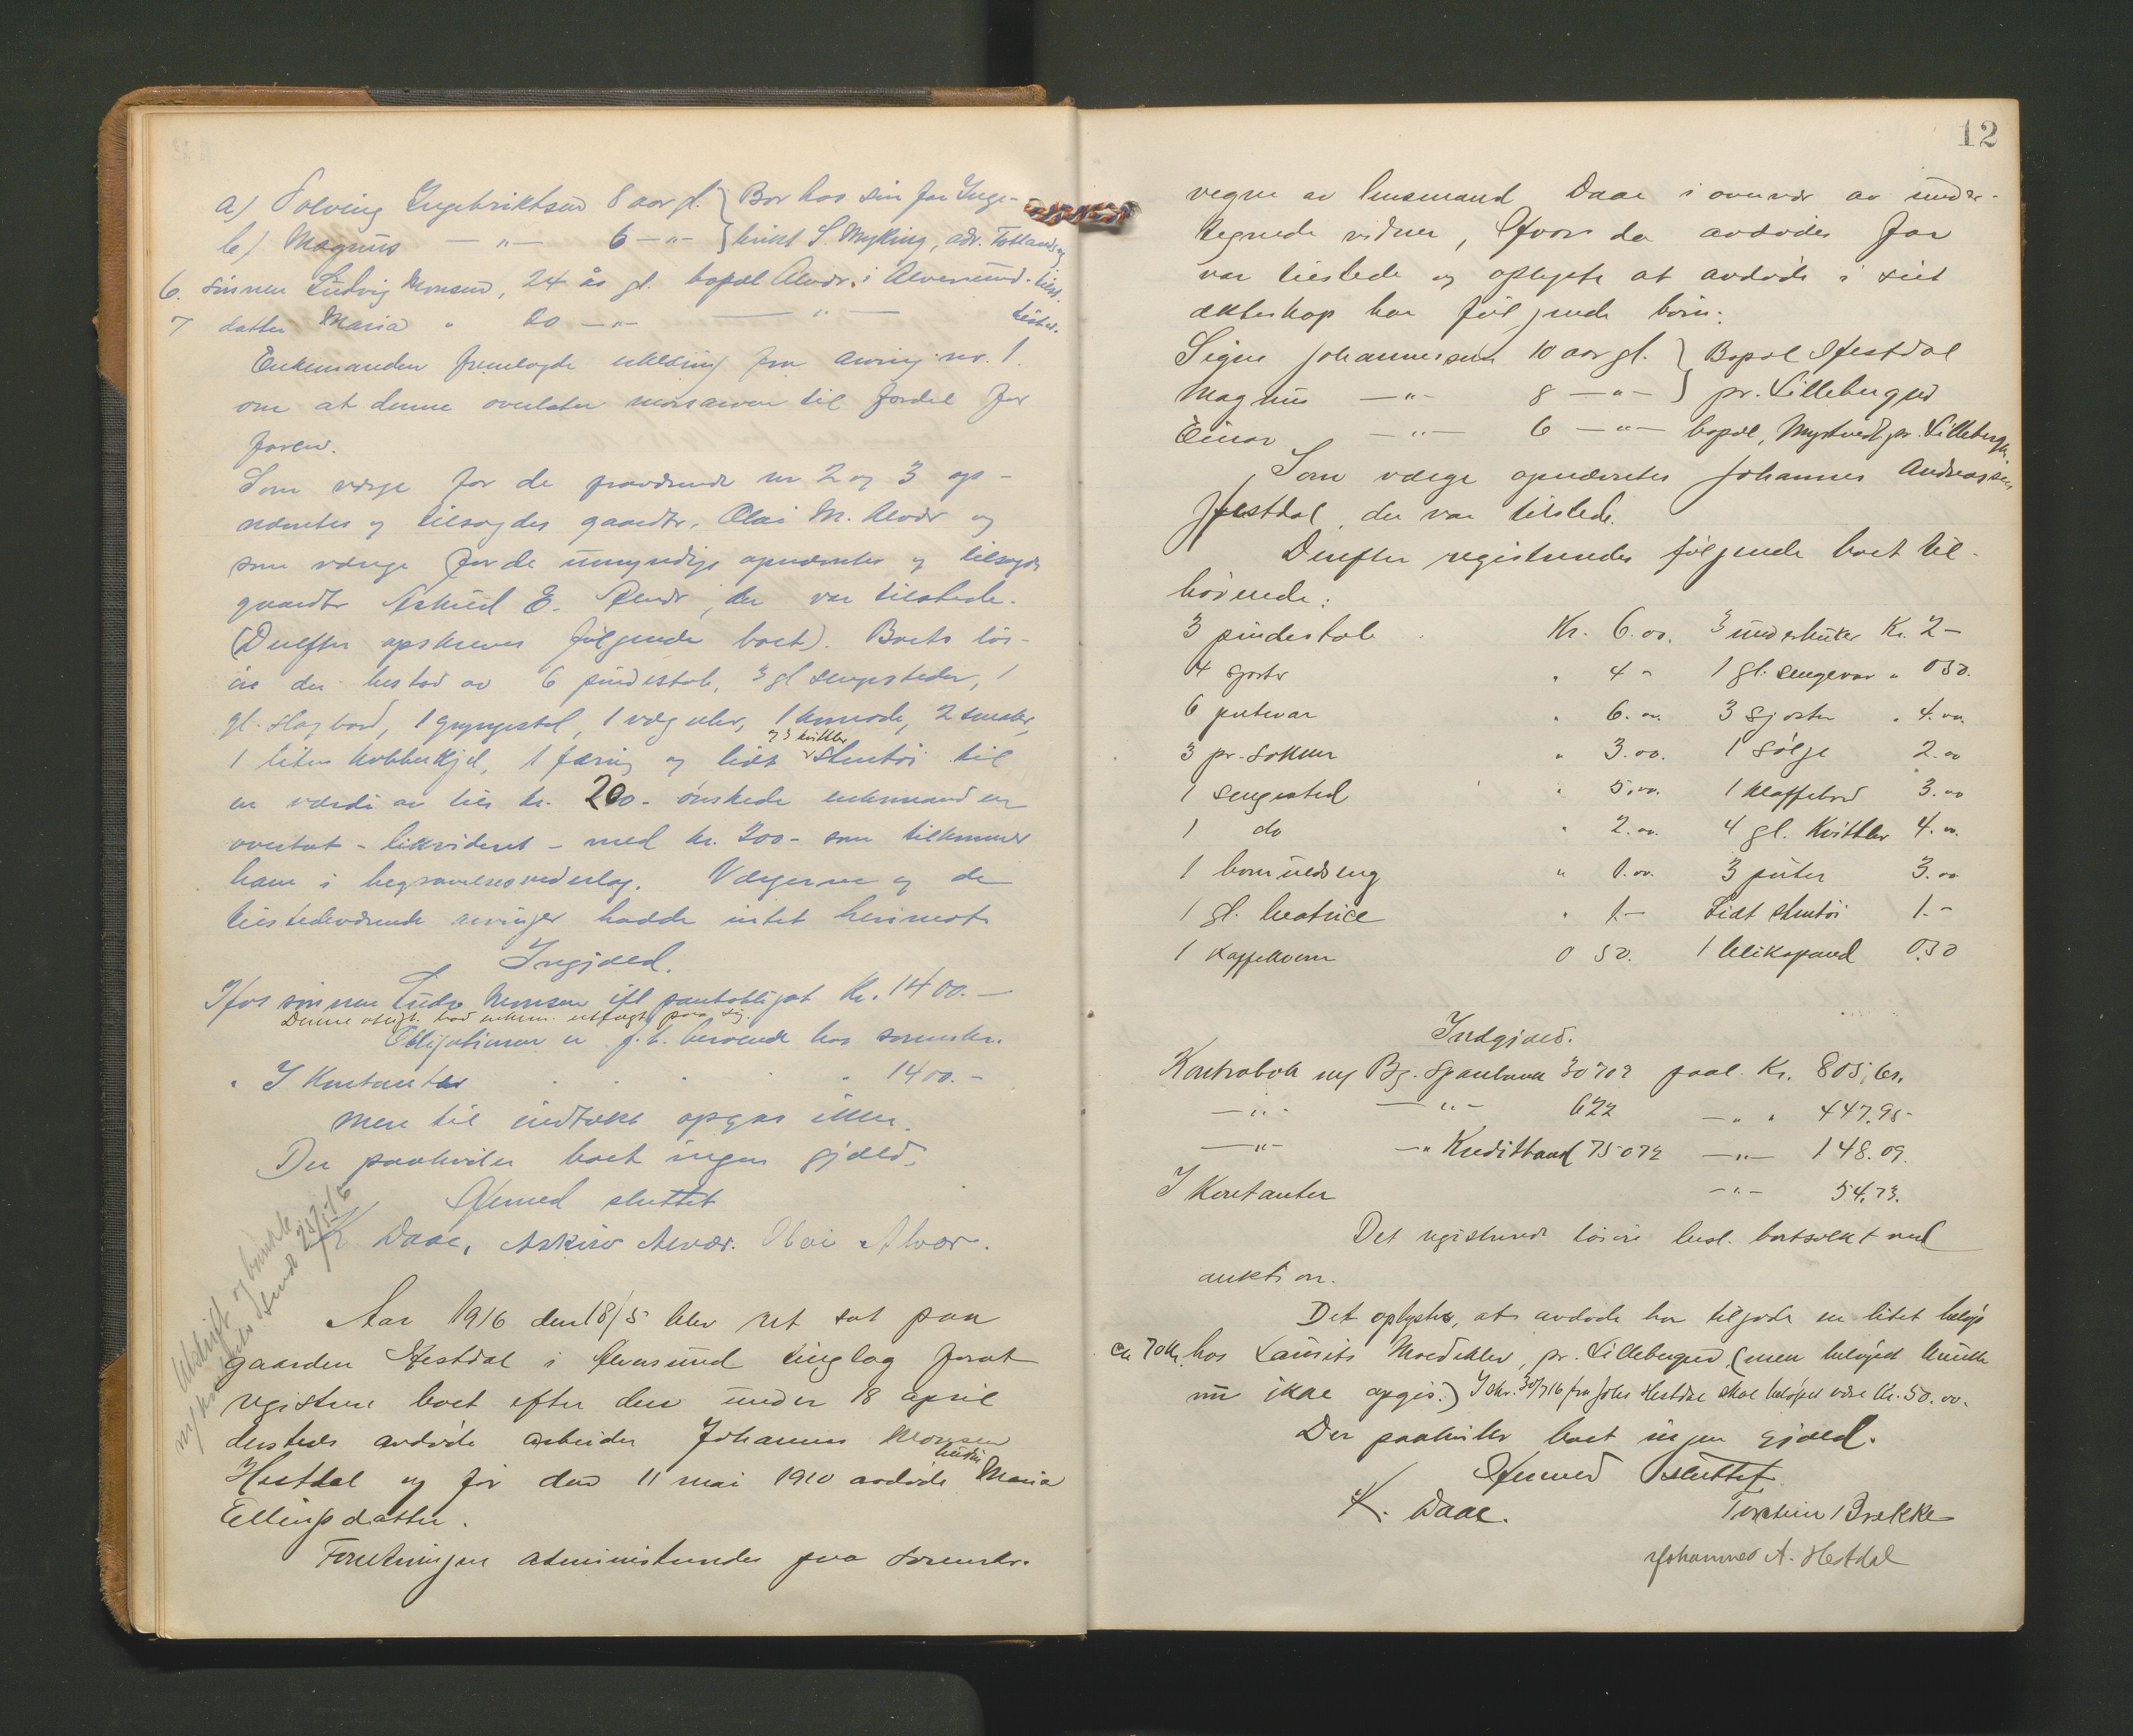 a) Solveig Ingebriktsen 8 aar gl. } Bor hos sin far Inge-
b) Magnus —"— 6 —"— } brikt S. Myking,
6. sønnen Ludvig Monsen, 24 år gl. bopæl Alvær i Alversund.
7 datter Maria " 20 —"— —"—
Enkemanden fremlagde erklæring fra arving nr. 1
om at denne overlater morsarven til fordel for
faren.
Som værge for de fraværende nr 2 og 3 op-
nævntes og tilsagdes gaardbr. Olai M. Alvær og
som værge for de umyndige opnævntes og tilsagdes
gaardbr Askild E. Alvær, der var tilstede.
(Derefter opskreves følgende boet). Boets løs-
øre der bestod av 6 pindestole, 3 gl sengesteder, 1
gl. slagbord, 1 gyngestol, 1 væguhr, 1 komode, 2
og 3 kvitler
1 liten kobberkjel, 1 færing og lidt stentøi til
en værdi av til kr. 200.- ønskede enkemanden
overtat - likvidert - med kr. 200- som tilkommer
ham i begravelsesvederlag. Værgerne og de
tilstedeværende arvinger hadde intet herimot
Indgjæld.
Hos sønnen Ludv Monsen ifl pantobligat Kr. 1400.—
Obligationen er f. t. beroende hos sorenskr.
" I Kontanter " 1400.-
Mere til indtækt opgas ikke.
Der paahviler boet ingen gjæld.
Hermed sluttet
K Daae, Askild Alvær. Olai Alvær.
Utskrift
sendt 25/5 16
Aar 1916 den 18/5 blev ret sat paa
gaarden Hestdal i Alversund tinglag forat
registrere boet efter den under 18 april
dersteds avdøde arbeider Johannes Monsen
hustru
Hestdal og før den 11 mai 1910 avdøde Maria
Ellingsdatter.
Forretningen administreredes paa sorenskr.
12
vegne av lensmand Daae i overvær av under-
tegnede vidner, Hvor da avdødes far
var tilstede og oplyste at avdøde i sit
ækteskap har følgende børn:
Signe Johannesen 10 aar gl. } Bopæl Hestdal
Magnus —"— 8 —"— } pr. Lillebergen
Einar —"— 6 —"— bopæl, Myrtvedt pr. Lillebergen.
Som værge opnævntes Johannes Andreassen
Hestdal, der var tilstede.
Derefter registreredes følgende boet til-
hørende:
3 pindestole Kr. 6.00. 3 Kr. 2—
4 " 4 - 1 gl. sengevar " 0 50.
6 putevar " 6.00. 3 skjorter " 4.00.
3 pr. sokker " 3.00. 1 sølje 2.00
1 sengested " 5.00. 1 klaffebord 3.00
1 do " 2.00. 4 gl. kvitler 4.00.
1 bomuldseng " 1.00. 3 puter 3.00
1 gl. " 1.- Lidt stentøi 1.-
1 kaffekvern 0 50. 1 blikspand 0.50
Indgjæld.
Kontrabok m/ Bg. Sparebank 30702 paal. Kr. 805,61.
—"— —"— 622 —"— " 447.95-
—"— —" Kreditbank 75072 —"— 148.09.
I Kontanter —"— 54.73.
Det registrerede løsøre besl. bortsolgt ved
auktion.
Det oplystes, at avdøde har tilgode en litet beløp
ca 70 kr. hos Laurits pr. Lillebergen (men beløpet kunde
nu ikke opgis.) I skr. 30/7 16 fra Johs Hestdal skal beløpet være Kr. 50.00.
Der paahviler boet ingen gjæld.
Hermed sluttet
K. Daae. Torstein Brekke
Johannes A. Hestdal